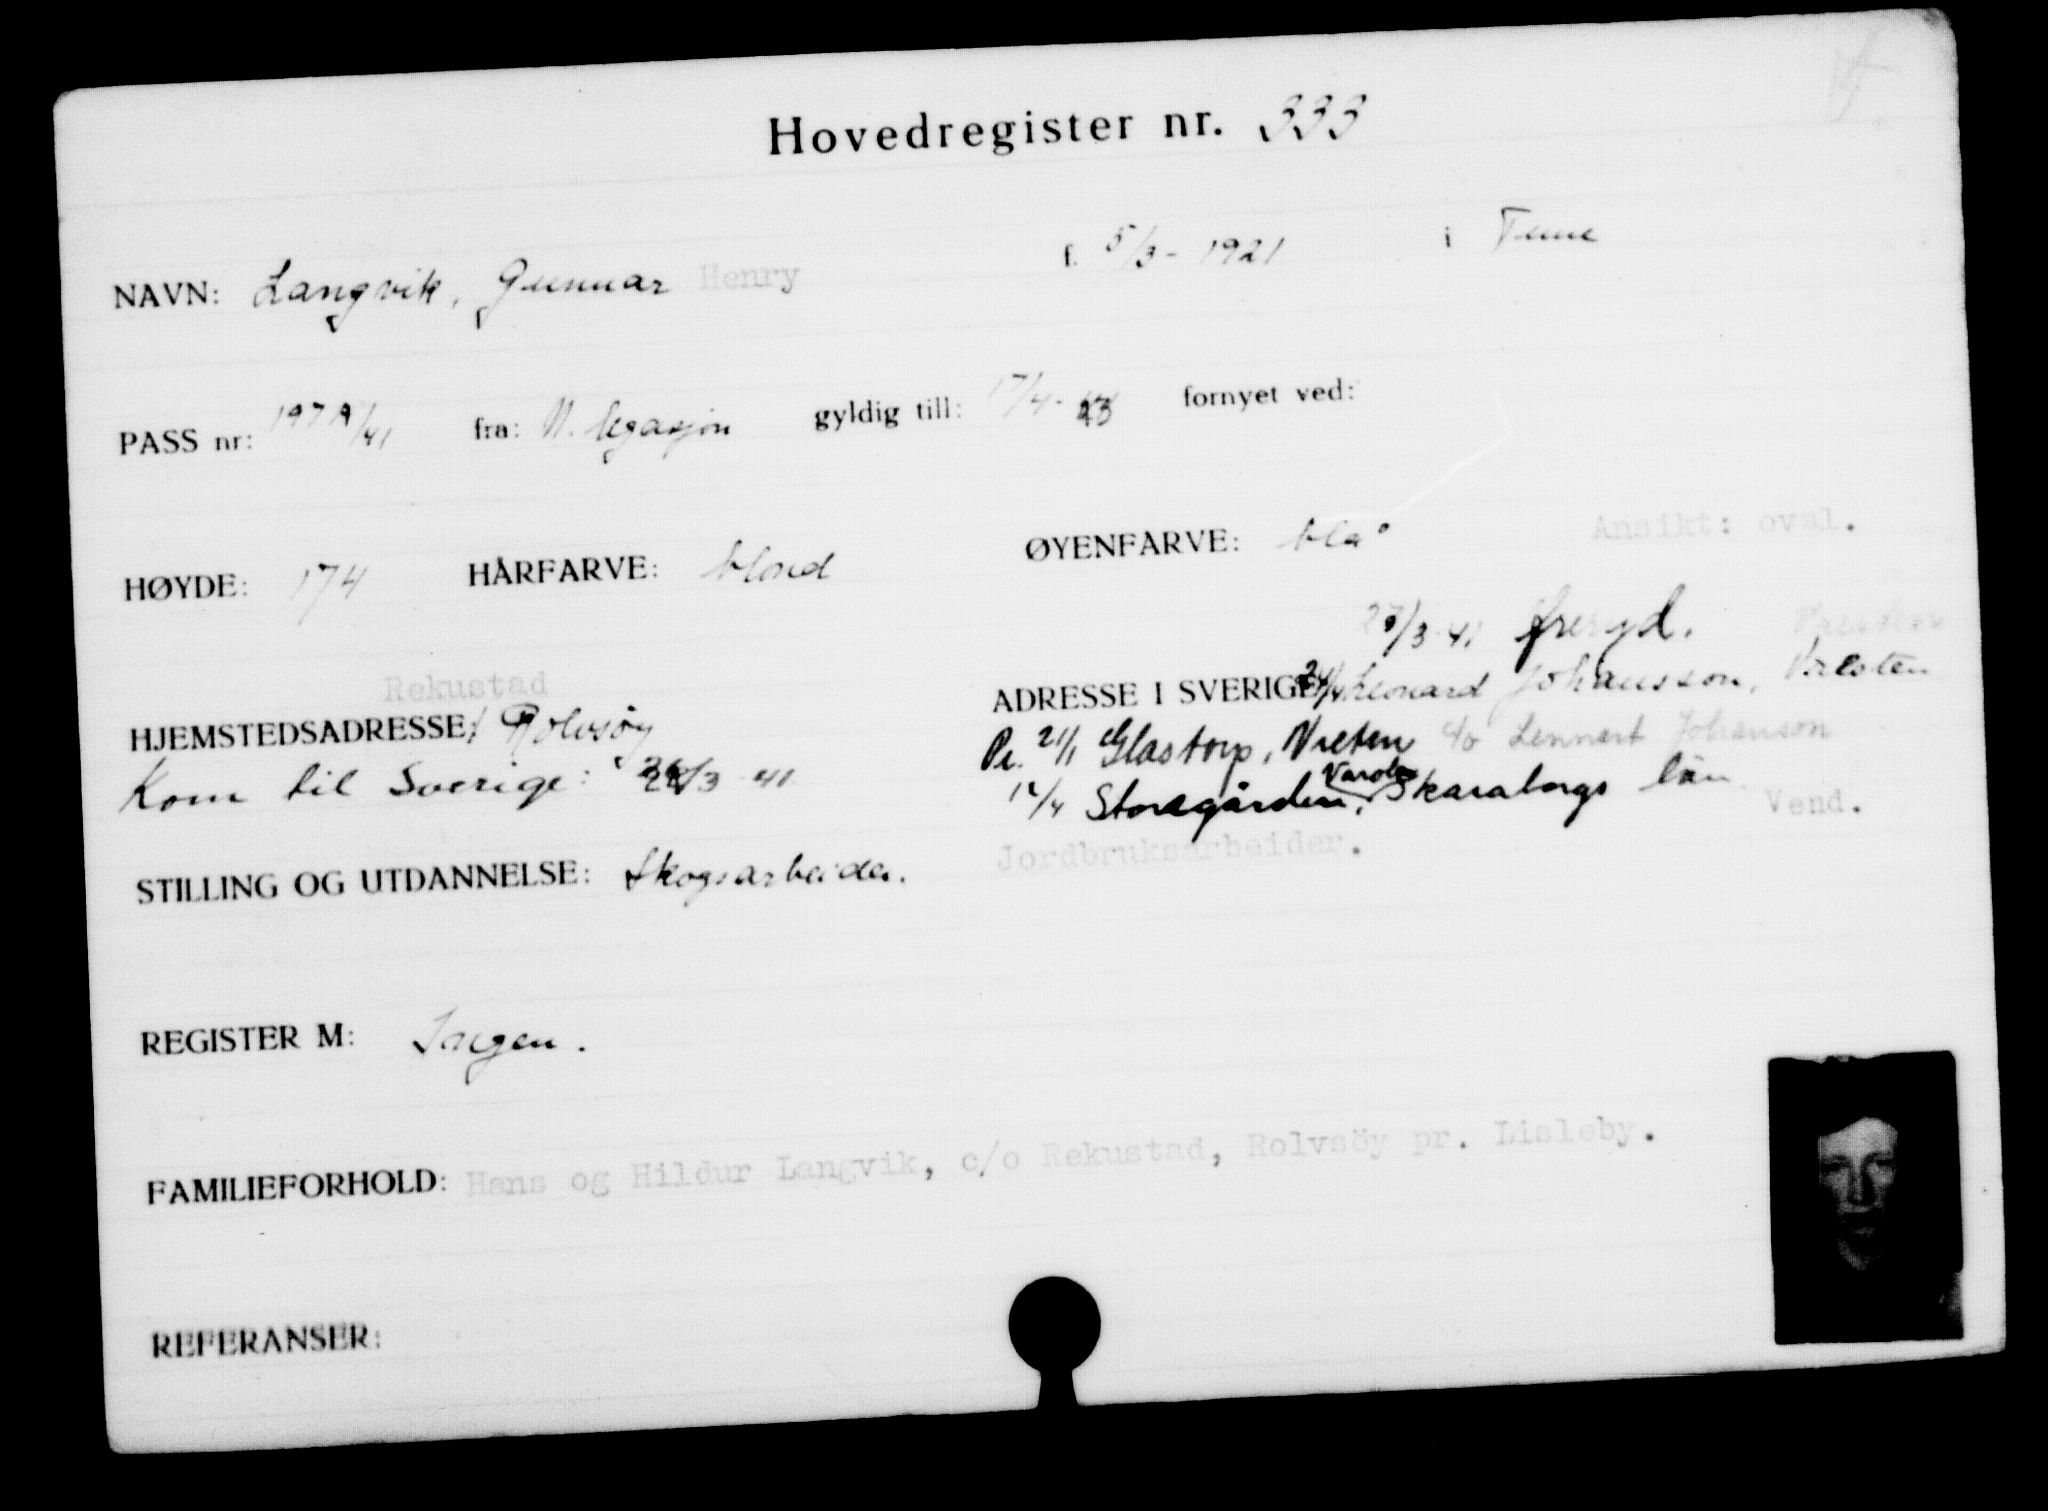 Hovedregister nr. 333
NAVN: Langvik, Gunnar Henry f. 5/3 - 1921 i Tune
PASS nr: 1979/41 fra: N. legasjon gyldig till: 17/4 - 43 fornyet ved:
HØYDE: 174 HÅRFARVE: blond ØYENFARVE: blå Ansikt: oval.
/3 41 Öreryd.
Rekustad
HJEMSTEDSADRESSE: Rolvsöy ADRESSE I SVERIGE: Leonard Johansson,
Kom til Sverige: /3 41
Pr. 21/1 Glastorp, Vreten c/o Lennart Johanson
12/4 Storegården, Skaraborgs län
Vend.
STILLING OG UTDANNELSE: Skogsarbeider. Jordbruksarbeider.
REGISTER M: Ingen.
FAMILIEFORHOLD: Hans og Hildur Langvik, c/o Rekustad, Rolvsöy pr. Lisleby.
REFERANSER: